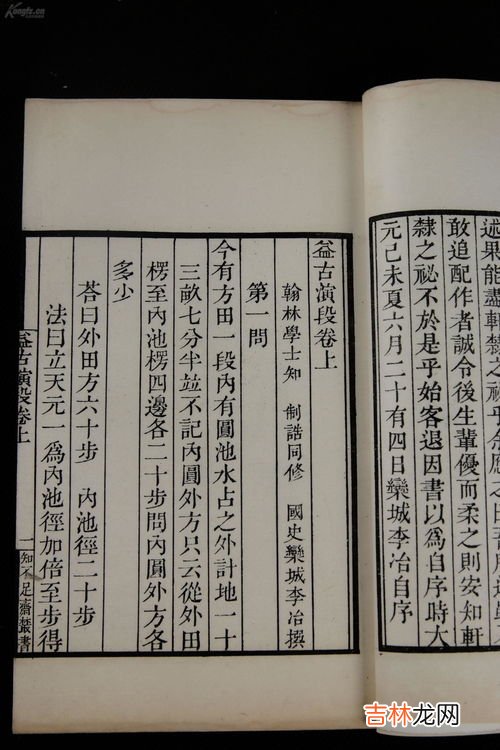 述果能盡軒隸之祕乎
敢追配作者誠令後生輩優而柔之則安知軒
隸之祕不於是乎始客退因書以為自序時大
元己未夏六月二十有四日欒城李冶自序
益古演段卷上
翰林學士知 制誥同修 國史欒城李冶撰
第一問
今有方田一段內有圓池水占之外計地一十
三畝七分半並不記內圓外方只云從外田
楞至內池楞四邊各二十步問內圓外方各
多少
荅曰外田方六十步 內池徑二十步
法曰立天元一爲內池徑加倍至步得
益古演段卷上
一
知不足齋叢書
Kongfz.cn
吉林龙网